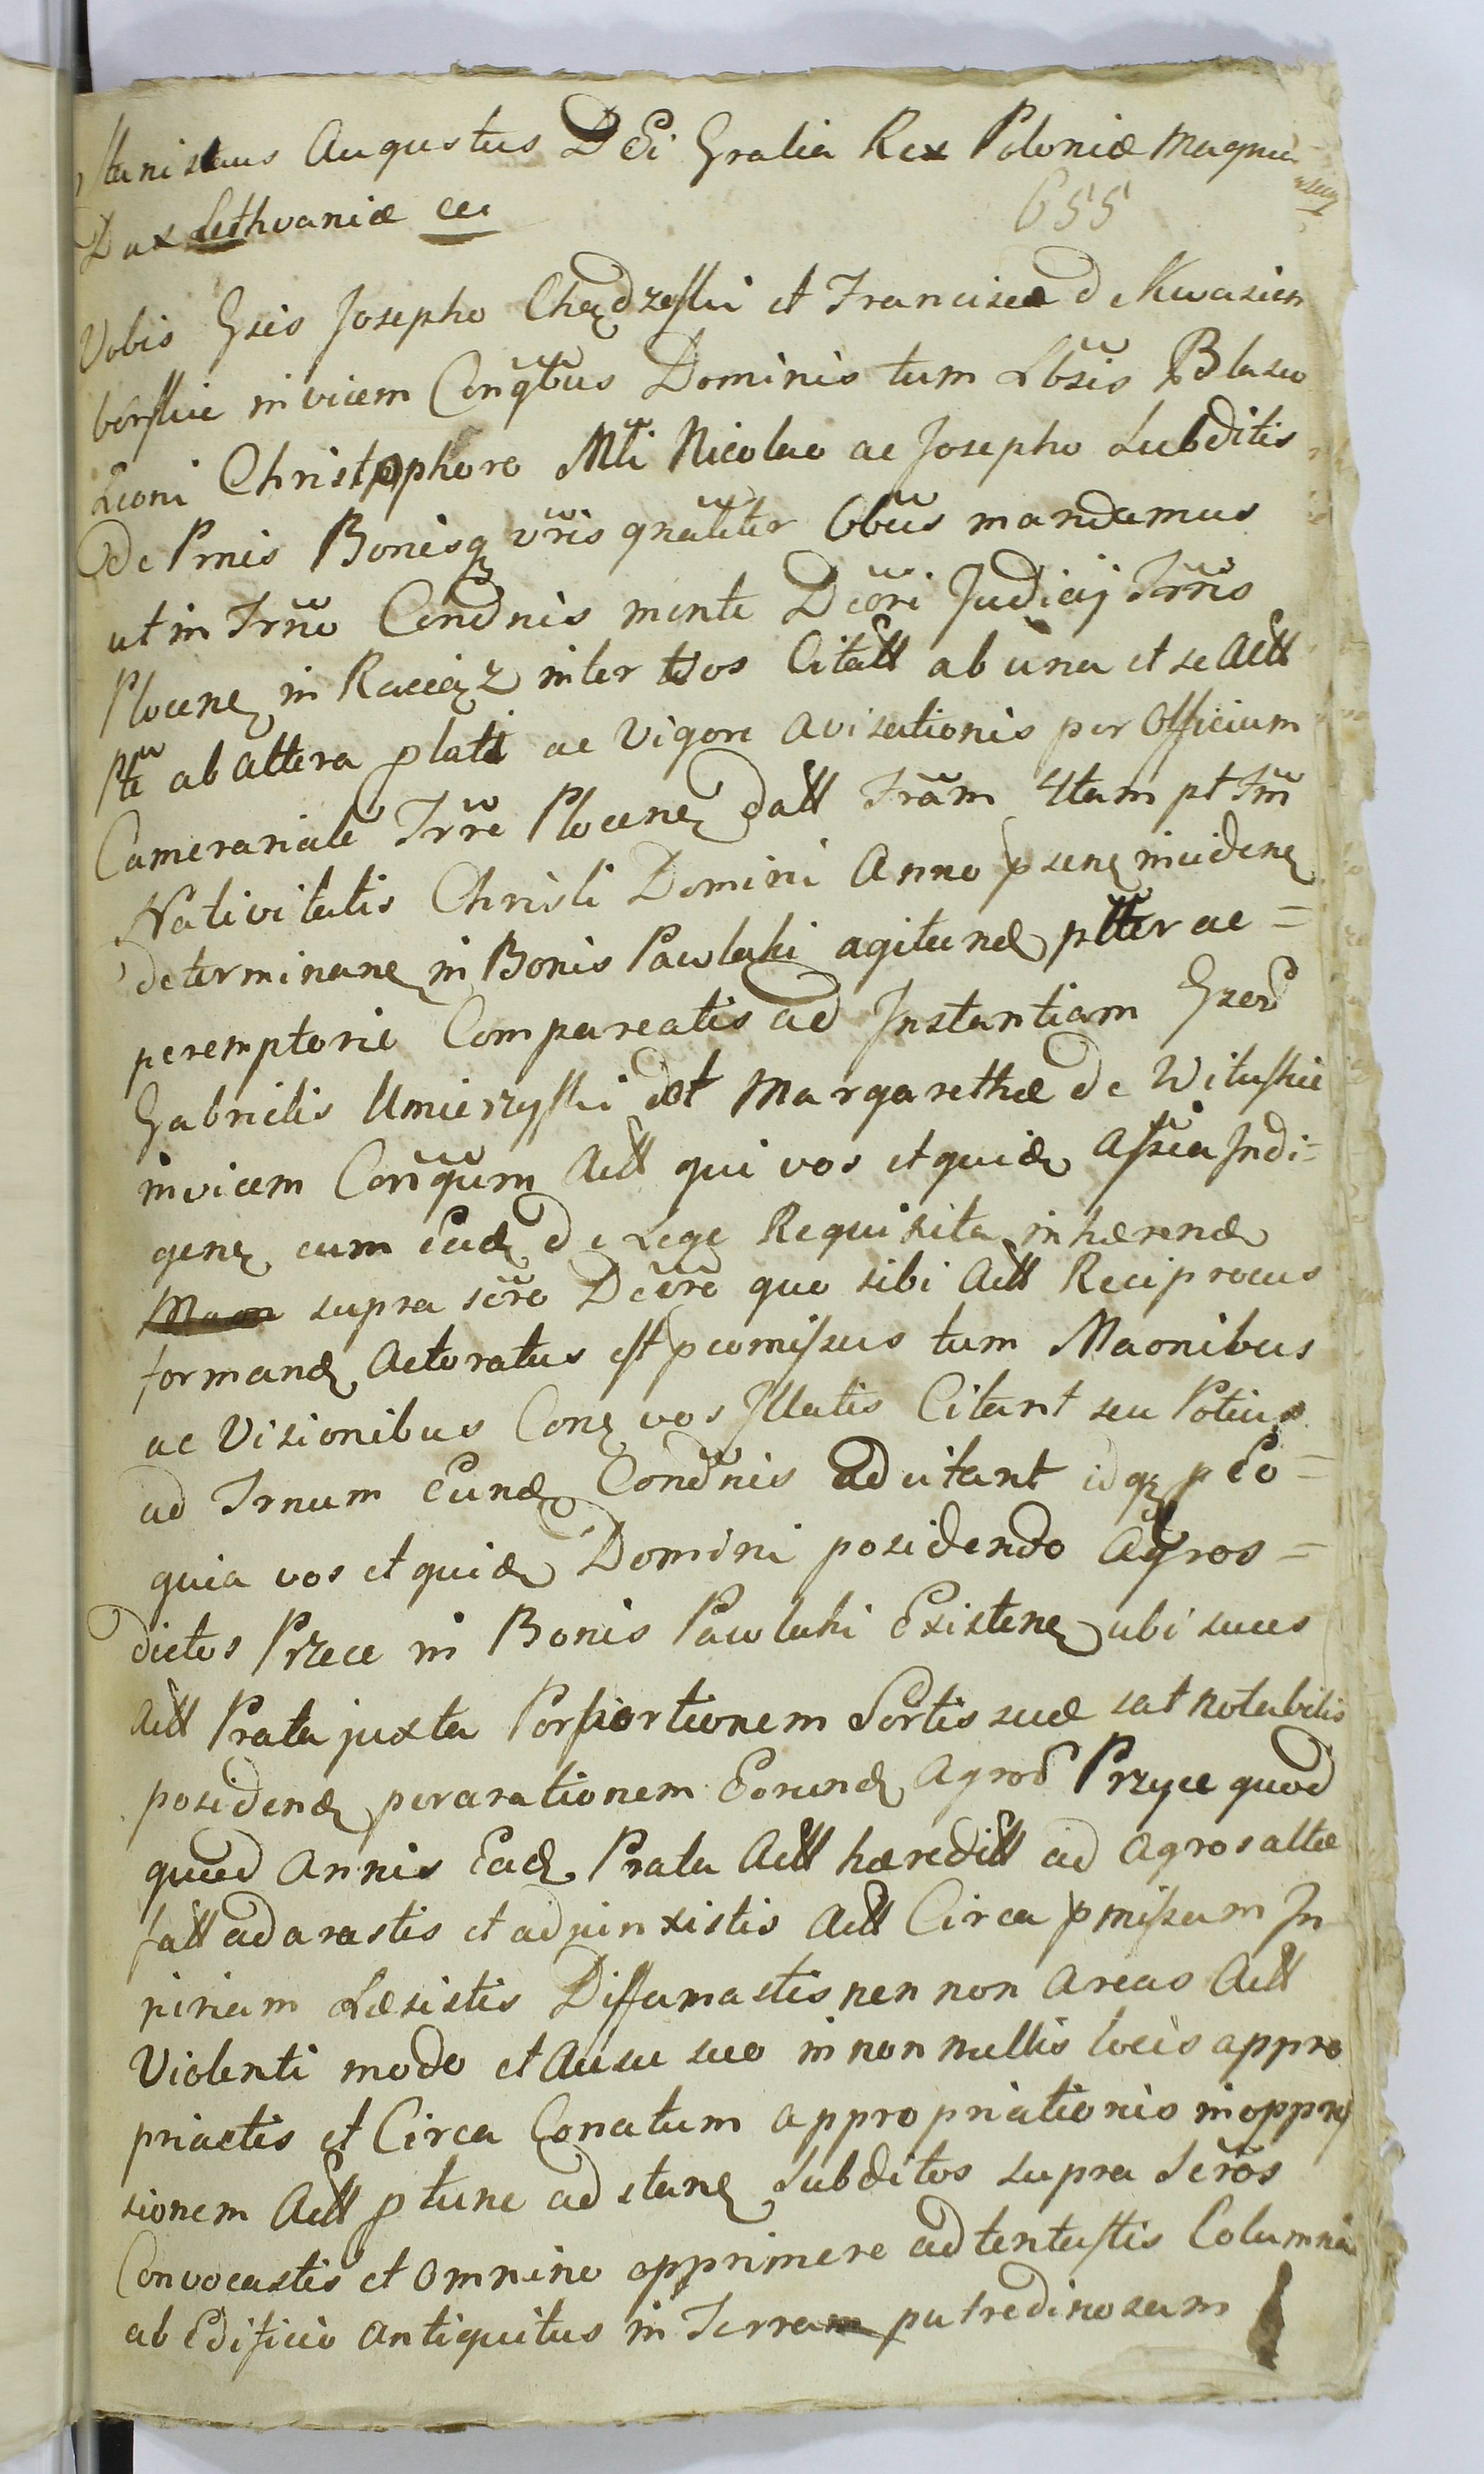 Stanislaus Augustus DEi Gratia Rex Poloniæ Magnus
655
Dux Lithvaniæ etc
Vobis Gsis Josepho Chądzeſki et Francisca de Kwasieb
borſkie invicem Conjgbus Dominis tum Lbsis Blasio
Leoni Christophoro Mli Nicolao ac Josepho Subditis
de Prnis Bonisq vris gnaliter Obus mandamus
ut in Trno Condnis mente Dcori Judicij Trris
Plocen in Raciąz inter vos Citatt ab una et se Actt
Pte ab altera plati ac Vigore Avisationis per Officium
Camerariale Trre Plocen datt Fram 4tam pt Fm
Nativitatis Christi Domini Anno psen inciden
determinan in Bonis Pawlaki agituræ ptter ac =
peremptorie Compareatis ad Instantiam Gser
Gabrielis Umierzyſki et Margarethæ de Wituſkie
invicem Conjgum Actt qui vos et quidē Assia Indi=
gen cum Ead de Lege Requisita inhæren
supra scro Dcore quo sibi Actt Reciprocus
formand Actoratus eſt pcomiſsus tum Maonibus
ac Visionibus Con vos Illatis Citant seu Potius
ad Trnum Eund Condnis adcitant idq p Eo =
quia vos et quidē Domini posidendo Agros =
dictos Przece in Bonis Pawlaki Existen ubi suos
Actt Prata juxta Porportionem Sortis suæ sat notabilis
posidend perarationem Eorund Agror Przyce quod
quod Annis Ead Prata Actt hæreditt ad Agros altæ
fatt adarastis et adjunxistis Actt Circa pmiſsam In
juriam Læsistis Diffamastis nen non Areas Actt
Violenti modo et Ausu suo in non nullis locis appro
priastis et Circa Conatum appropriationis in oppreſ
sionem Actt p tunc adstan Subditos supra Scros
Convocastis et Omnino opprimere adtentaſtis Columna
ab Edificio Antiquitus in Terram putredinosam